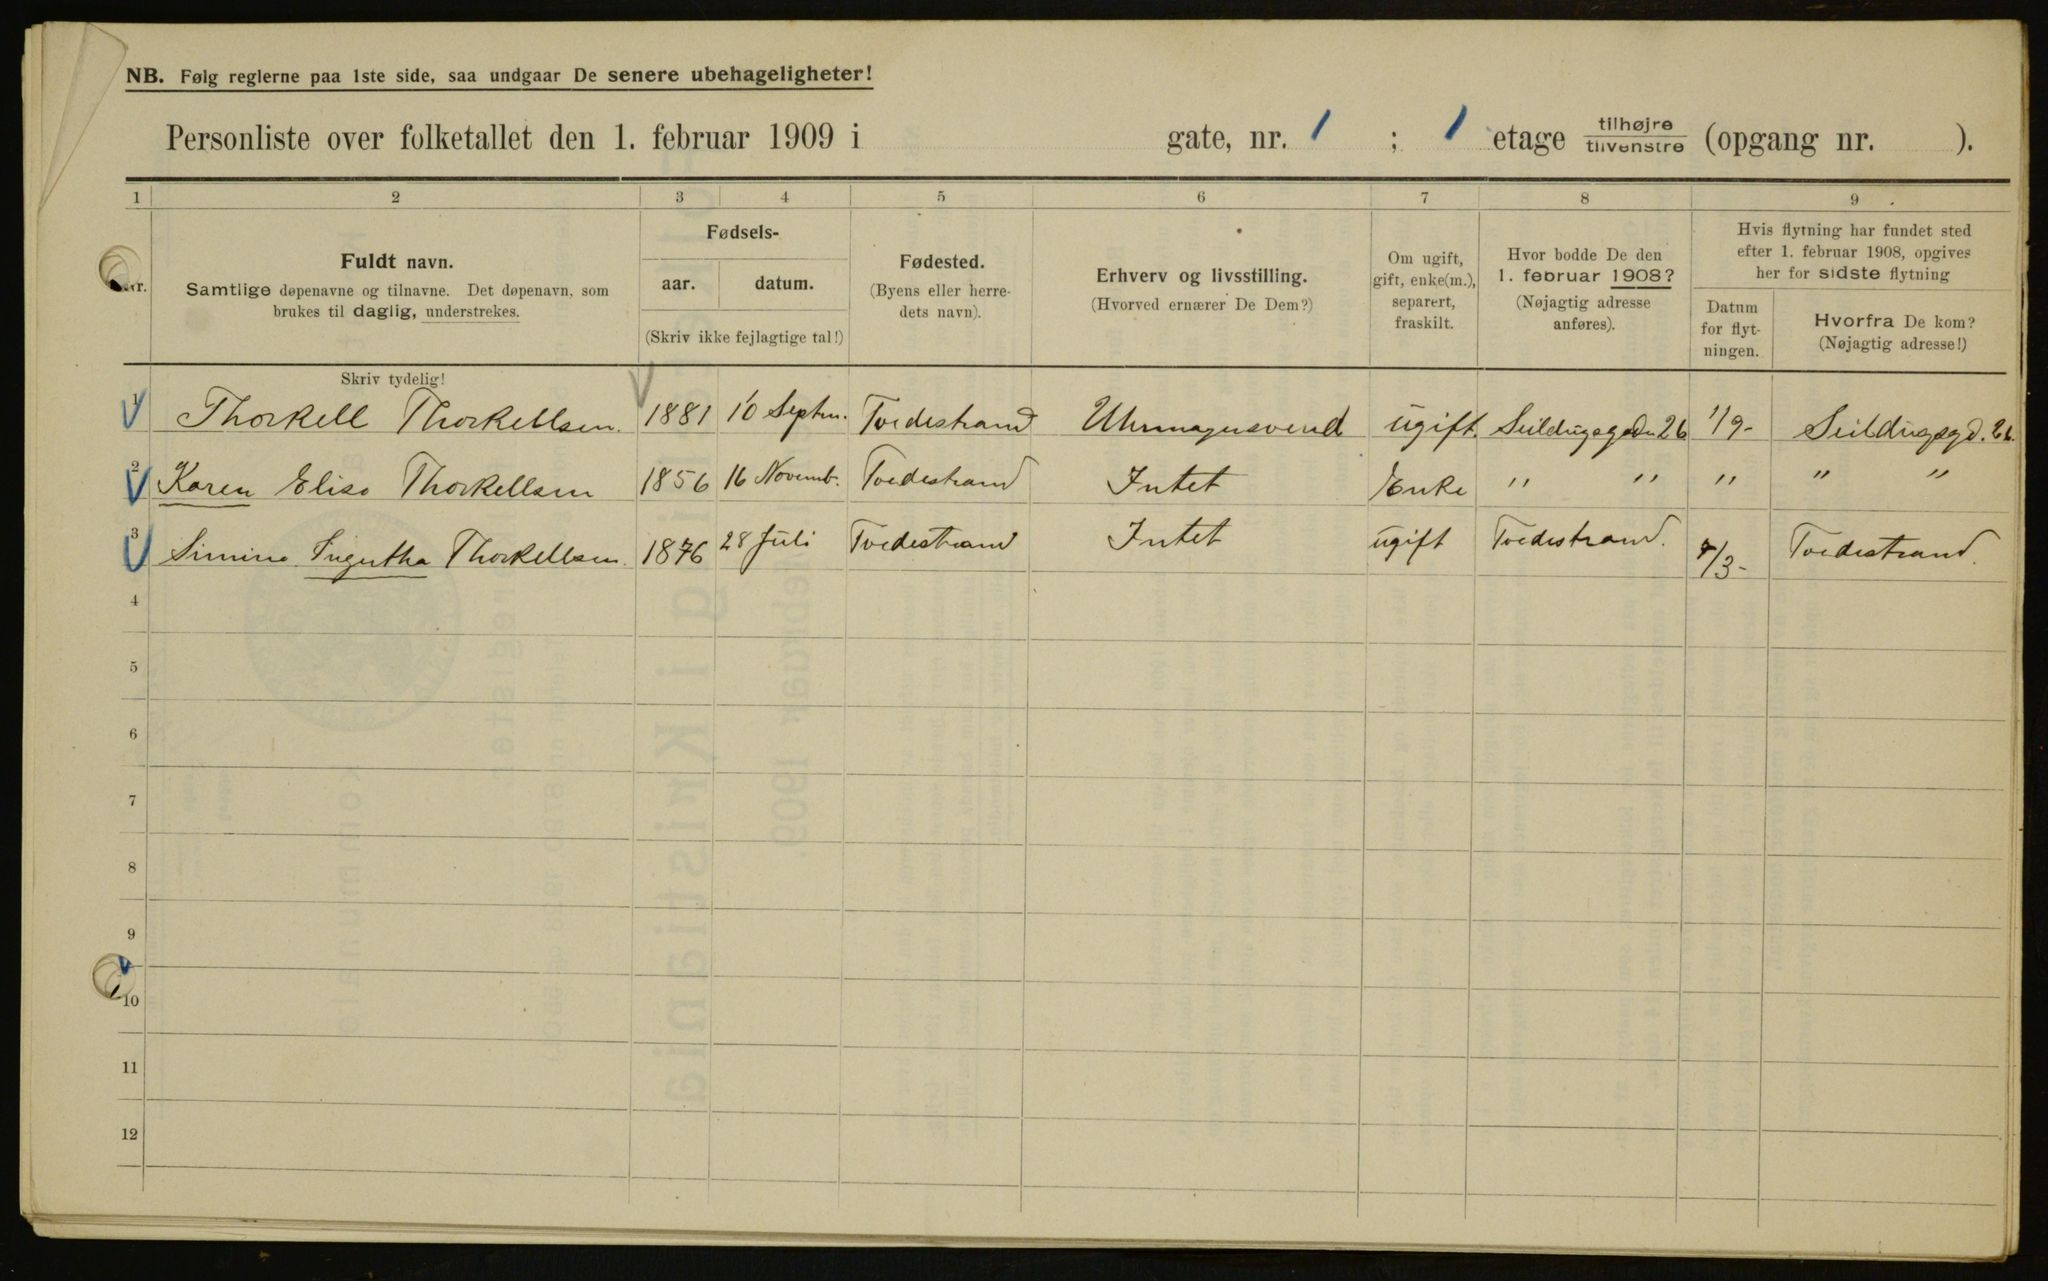 NB. Følg reglerne paa 1ste side, saa undgaar De senere ubehageligheter!
Personliste over folketallet den 1. februar 1909 i gate, nr. 1 ; 1 etage tilhøjre tilvenstre (opgang nr. ).
1 2 3 4 5 6 7 8 9
Nr.
Fuldt navn.
Samtlige døpenavne og tilnavne. Det døpenavn, som
brukes til daglig, understrekes.
Skriv tydelig!
Fødsels-
aar. datum.
(Skriv ikke fejlagtige tal!)
Fødested.
(Byens eller herre-
dets navn).
Erhverv og livsstilling.
(Hvorved ernærer De Dem?)
Om ugift,
gift, enke(m.),
separert,
fraskilt.
Hvor bodde De den
1. februar 1908?
(Nøjagtig adresse
anføres).
Hvis flytning har fundet sted
efter 1. februar 1908, opgives
her for sidste flytning
Datum
for flyt-
ningen.
Hvorfra De kom?
(Nøjagtig adresse!)
1 Thorkell Thorkellsen. 1881 10 Septm. Tvedestrand Uhrmagersvend ugift. Seildugsgaden 26 1/9- Seildugsgd. 26.
2 Karen Elise Thorkellsen 1856 16 Novemb. Tvedestrand Intet Enke " " " " "
3 Simine Ingertha Thorkellsen. 1876 28 Juli Tvedestrand Intet ugift Tvedestrand. /3- Tvedestrand.
4
5
6
7
8
9
10
11
12